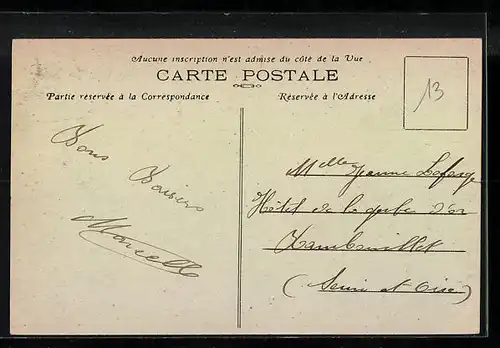 Aucune inscription n'est admise du côté de la Vue
CARTE POSTALE
Partie réservée à la Correspondance
Réservée à l'Adresse
13
Bons
Baisers
Marcelle
Mlle Jeanne Lafarge
Hôtel de la gerbe d'or
Rambouillet
(Seine et Oise)